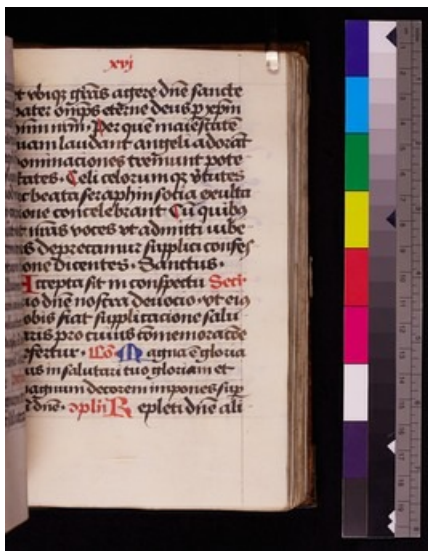 xvj
et vbiqz grãs agere dñe sancte
pater omps eterne deus p xpm
dnm nrm. Per quẽ maiestatẽ
tuam laudant angeli adorãt
dominaciones tremunt pote
states. Celi celorum qz v̓tutes
ac beata seraphin socia exulta
cione concelebrant Cũ quibꝯ
et nr̃as voces vt admitti iube
as deprecamur supplici confes
sione dicentes. Sanctus.
Accepta sit in conspectu Secr̃.
tuo dñe nostra deuocio. vt eiꝯ
nobis fiat supplicacione salu
taris pro cuius comemoracõe
offertur. Cõ Magna ẽ gloria
eius in salutari tuo gloriam et
magnum decorem impones sup
eũ dñe. ꝯpl̃m Repleti dñe ali